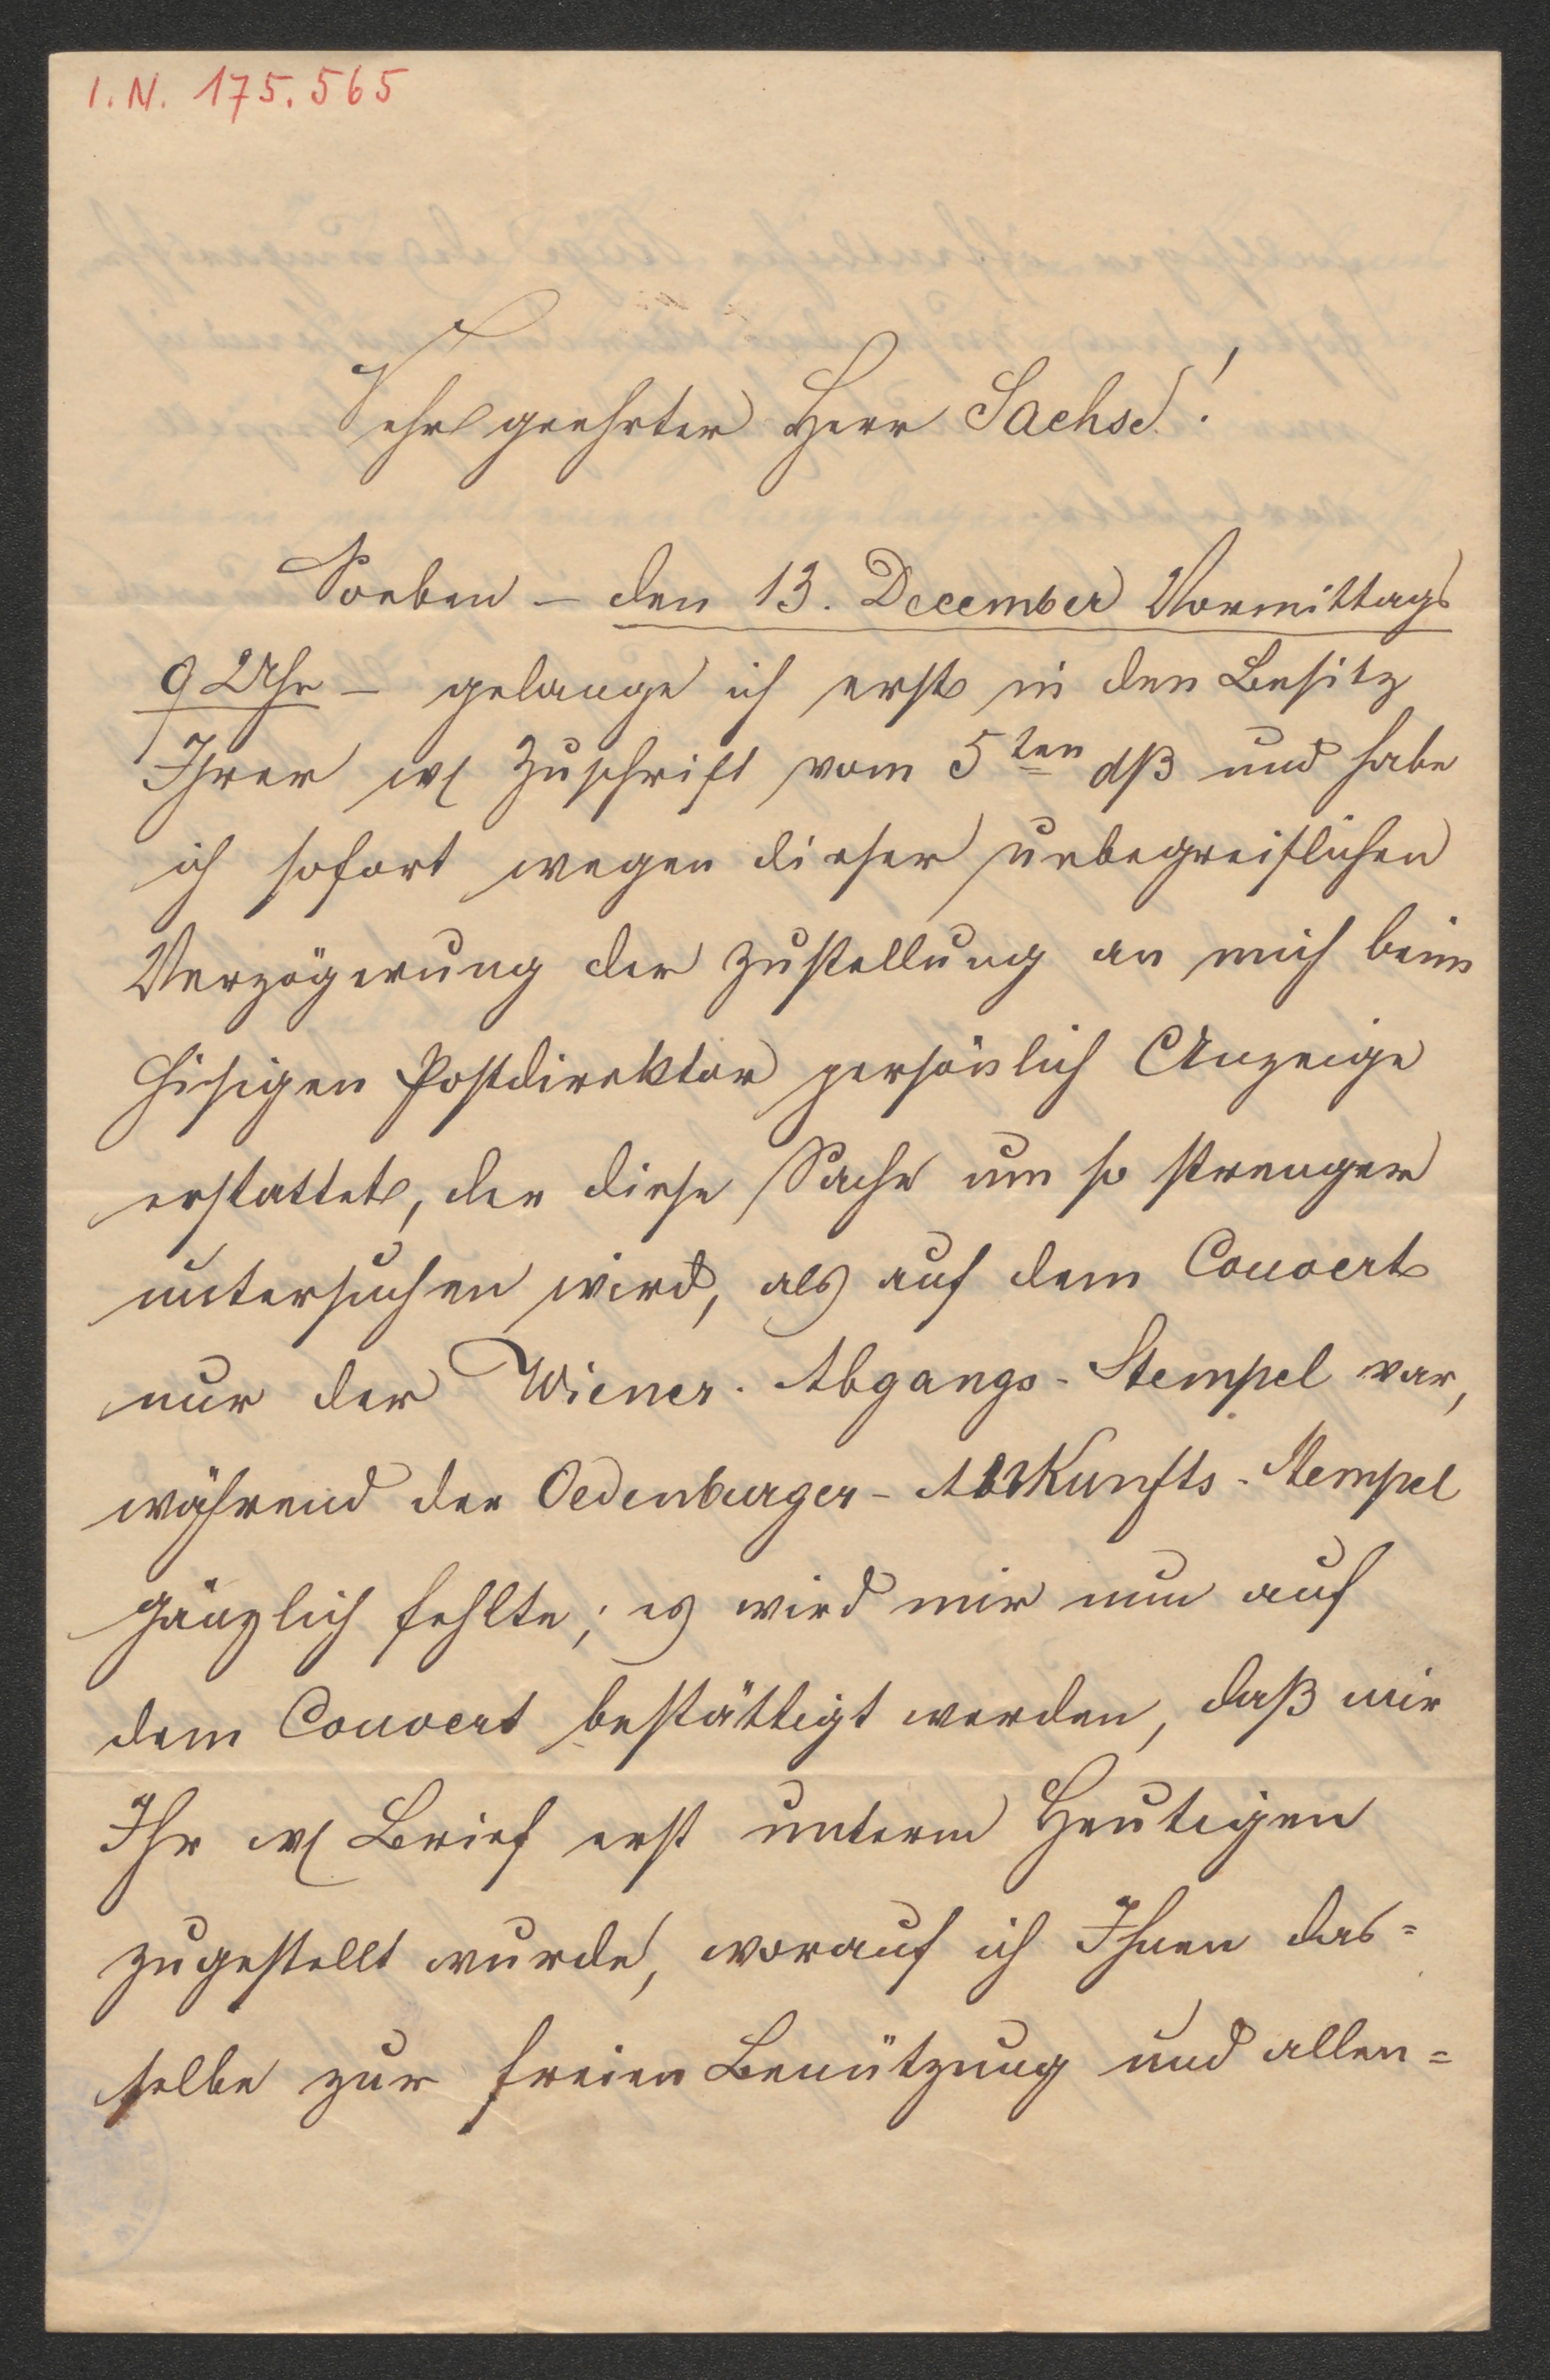 I. N. 175.565
Sehr geehrter Herr Sachse!
Soeben – den 13. December Vormittags
9 Uhr – gelange ich erst in den Besitz
Ihrer w. Zuschrift vom 5ten dß und habe
ich sofort wegen dieser unbegreiflichen
Verzögerung der Zustellung an mich beim
hisigen Postdirektor persönlich Anzeige
erstattet, der diese Sache um so strenger
untersuchen wird, als auf dem Couvert
nur der Wiener-Abgangs-Stempel war,
während der Oedenburger-Ankunfts-Stempel
gänzlich fehlte; es wird mir nun auf
dem Couvert bestättigt werden, daß mir
Ihr w. Brief erst unterm Heutigen
zugestellt wurde, worauf ich Ihnen das=
selbe zur freien Benützung und allen=